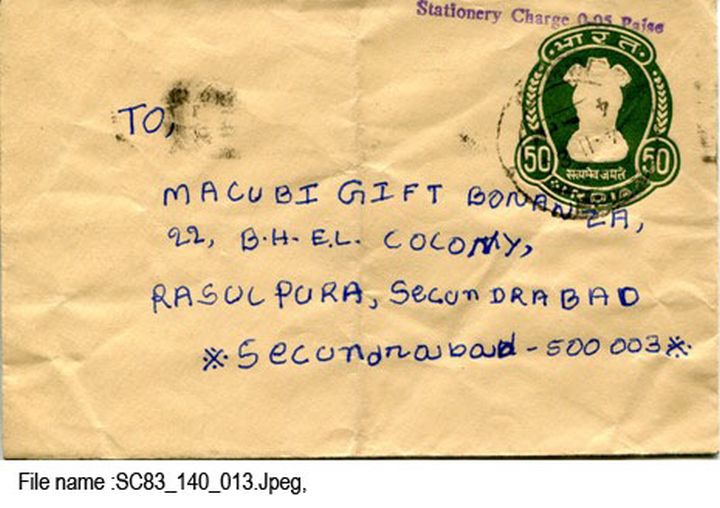 Stationery Charge 0.05 Paise
भारत
50 50
सत्यमेव जयते
TO,
MACUBI GIFT BONANZA,
22, B.H.E.L. COLONY,
RASULPURA, SECUNDRABAD
※Secundrabad - 500 003※
File name :SC83_140_013.Jpeg,